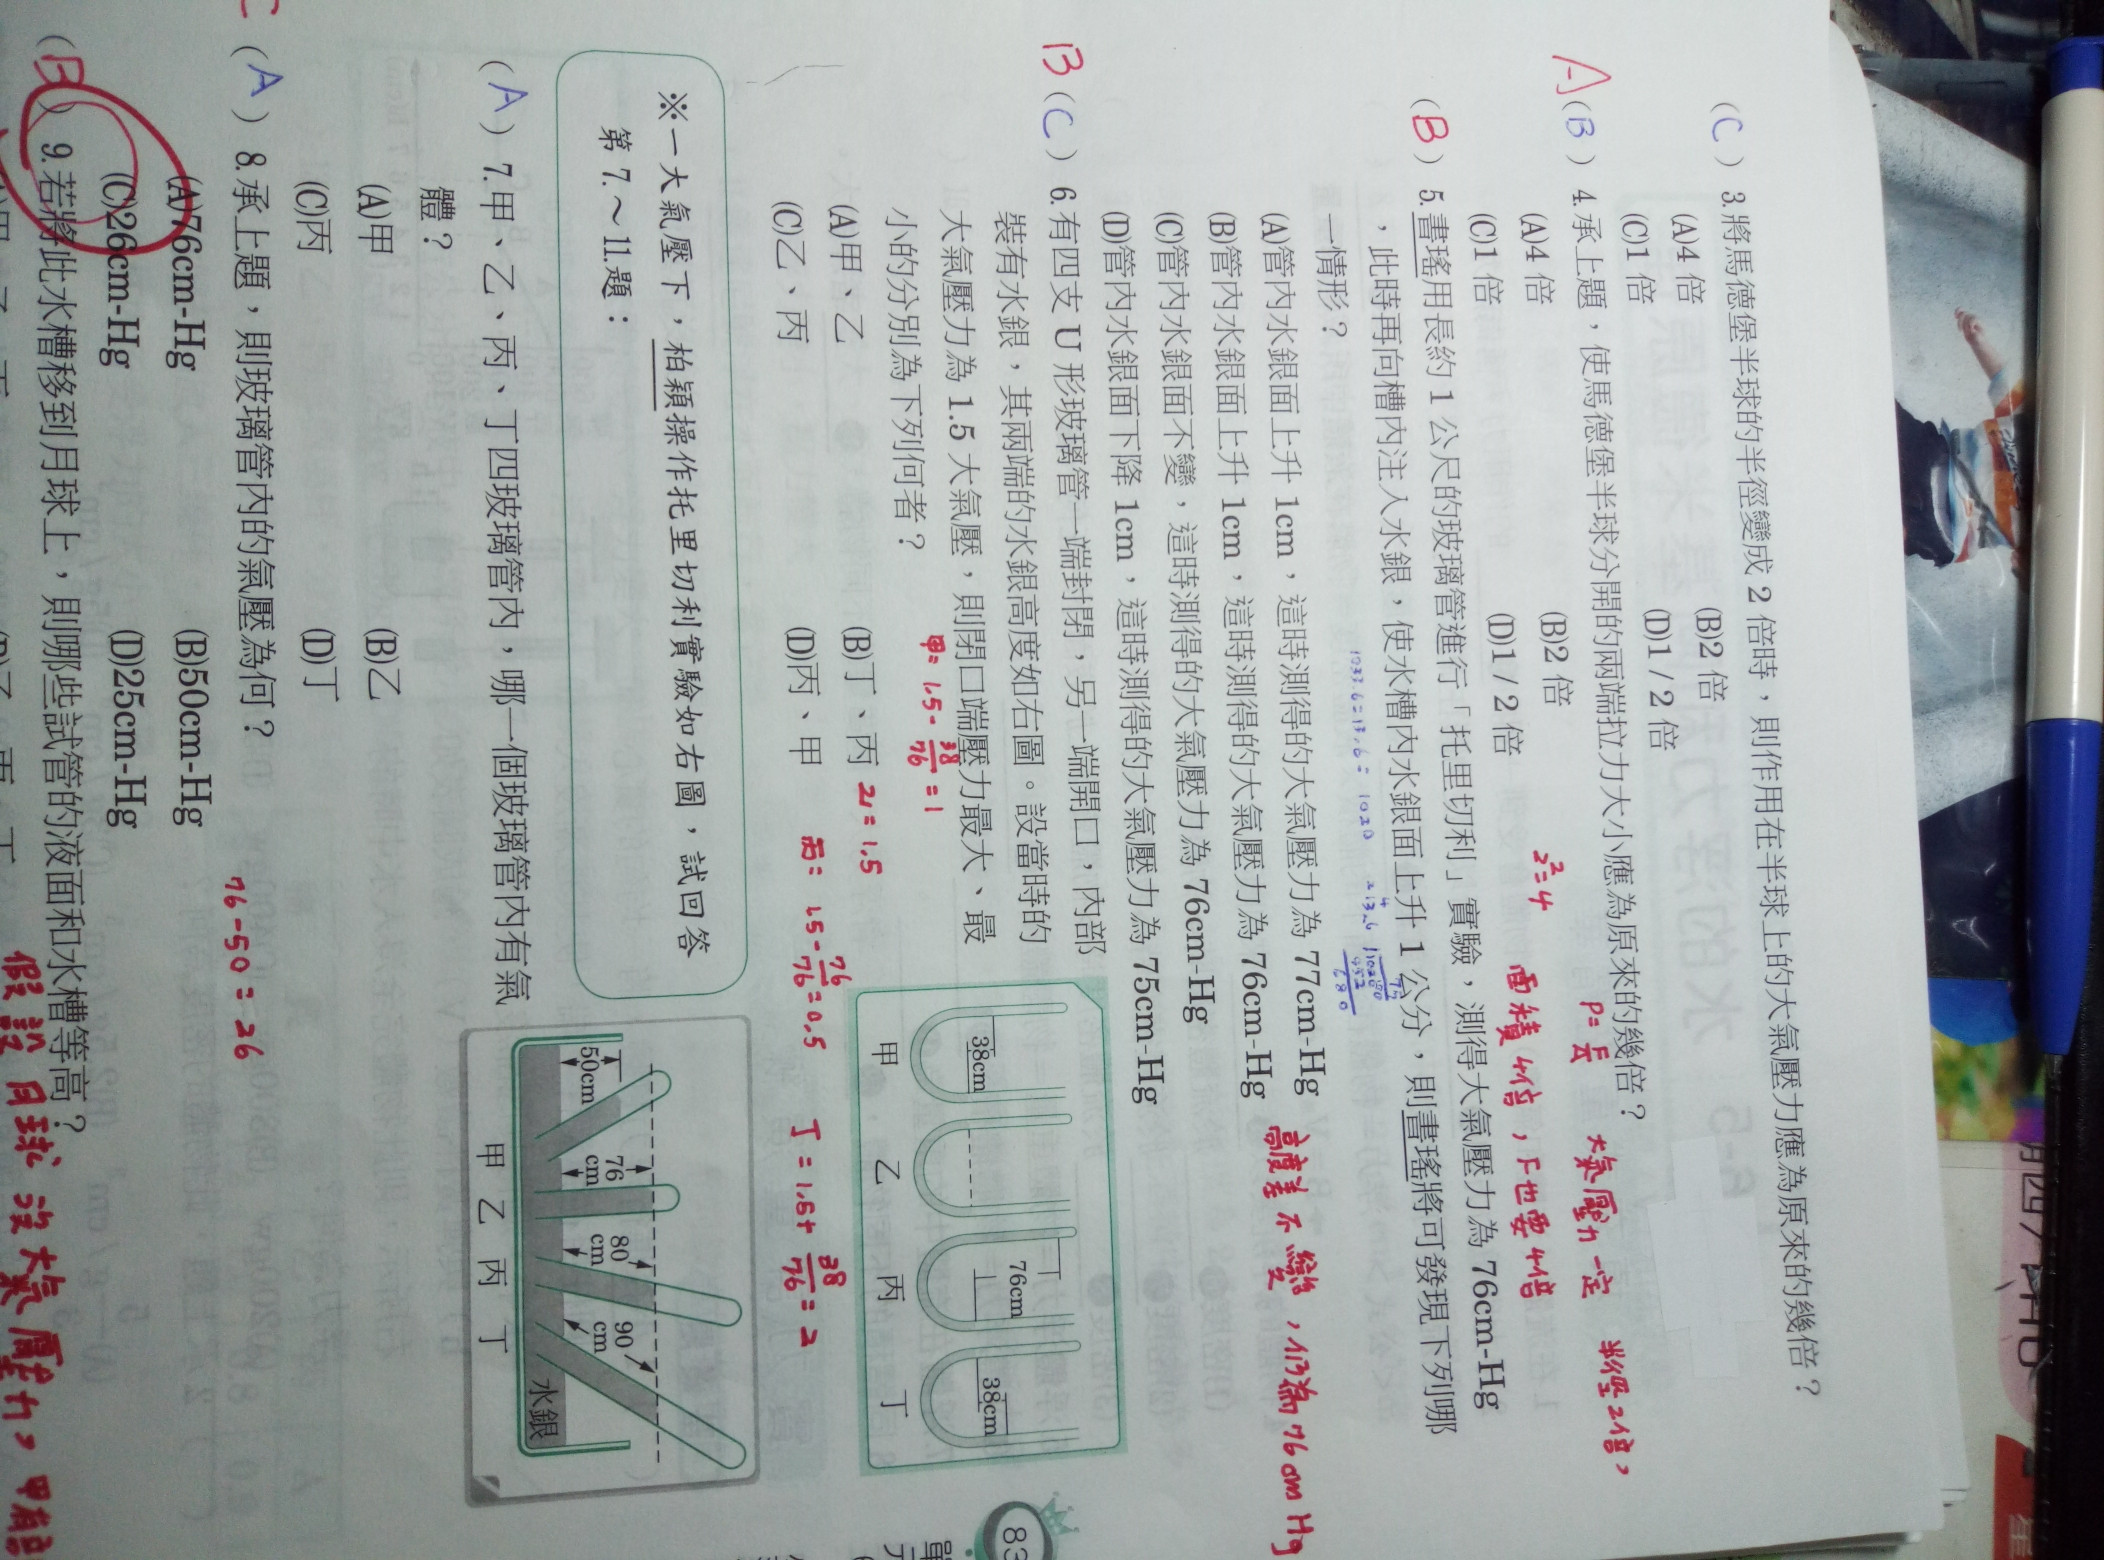 (C) 3.將馬德堡半球的半徑變成 2 倍時，則作用在半球上的大氣壓力應為原來的幾倍？
(A)4 倍 (B)2 倍
(C)1 倍 (D)1 / 2 倍
A (B) 4.承上題，使馬德堡半球分開的兩端拉力大小應為原來的幾倍？
P=F/A 大氣壓力一定 半徑2倍，
(A)4 倍 (B)2 倍 2²=4
(C)1 倍 (D)1 / 2 倍 面積4倍，F也要4倍
(B) 5.書瑤用長約 1 公尺的玻璃管進行「托里切利」實驗，測得大氣壓力為 76cm-Hg
，此時再向槽內注入水銀，使水槽內水銀面上升 1 公分，則書瑤將可發現下列哪
一情形？
(A)管內水銀面上升 1cm，這時測得的大氣壓力為 77cm-Hg
(B)管內水銀面上升 1cm，這時測得的大氣壓力為 76cm-Hg
高度差不變，仍為76cmHg
(C)管內水銀面不變，這時測得的大氣壓力為 76cm-Hg
(D)管內水銀面下降 1cm，這時測得的大氣壓力為 75cm-Hg
B (C) 6.有四支 U 形玻璃管一端封閉，另一端開口，內部
裝有水銀，其兩端的水銀高度如右圖。設當時的
大氣壓力為 1.5 大氣壓，則閉口端壓力最大、最
小的分別為下列何者？
甲=1.5-38/76=1
(A)甲、乙 (B)丁、丙 乙=1.5
(C)乙、丙 (D)丙、甲 丙=1.5-76/76=0.5 丁=1.5+38/76=2
38cm 76cm 38cm
甲 乙 丙 丁
※一大氣壓下，柏穎操作托里切利實驗如右圖，試回答
第 7.～11.題：
(A) 7.甲、乙、丙、丁四玻璃管內，哪一個玻璃管內有氣
體？
(A)甲 (B)乙
(C)丙 (D)丁
50cm 76cm 80cm 90cm
水銀
甲 乙 丙 丁
C (A) 8.承上題，則玻璃管內的氣壓為何？
76-50=26
(A)76cm-Hg (B)50cm-Hg
(C)26cm-Hg (D)25cm-Hg
(B) 9.若將此水槽移到月球上，則哪些試管的液面和水槽等高？
假設月球沒大氣壓力，甲有
83